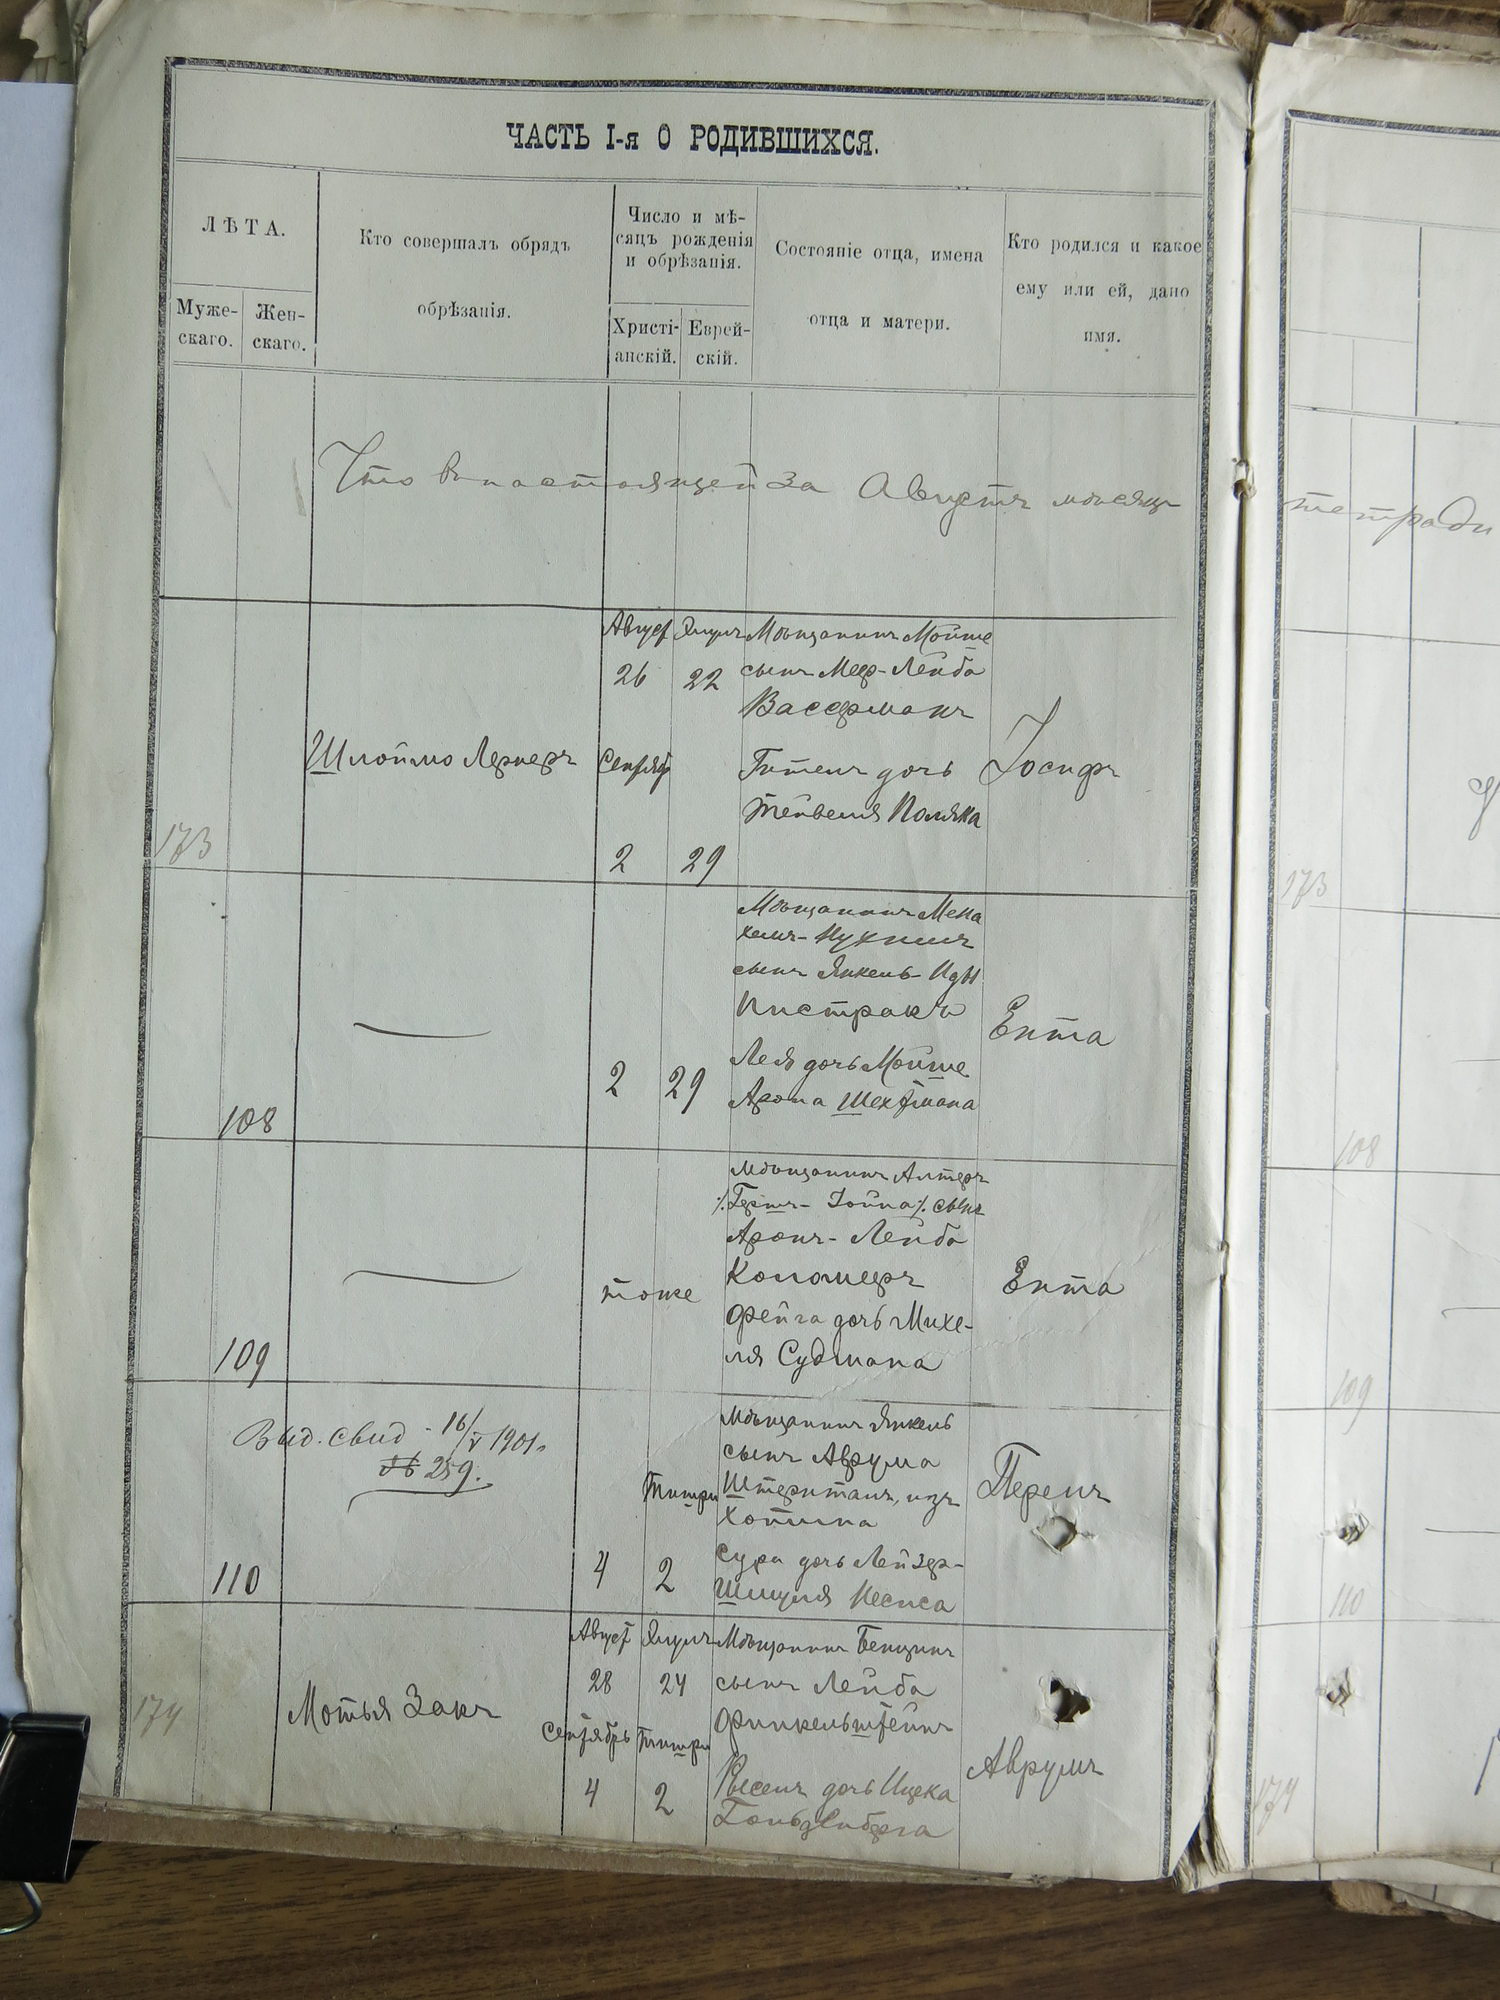 ЧАСТЬ I-я О РОДИВШИХСЯ.
ЛѢТА.
Муже-
скаго.
Жен-
скаго.
Кто совершалъ обрядъ
обрѣзанія.
Число и мѣ-
сяцъ рожденія
и обрѣзанія.
Христі-
анскій.
Еврей-
скій.
Состояніе отца, имена
отца и матери.
Кто родился и какое
ему или ей, дано
имя.
Что в настоящей за Августъ мѣсяцъ
тетради
173
Шлоймо Лернеръ
Август
26
Элулъ
22
Сентябр
2
29
Мѣщанинъ Мойше
сынъ Меер-Лейба
Васерманъ
Гителъ дочь
Тейвеля Поляка
Іосифъ
173
108
2
29
Мѣщанинъ Мена
хемъ-Нухимъ
сынъ Янкель-Иды
Пистракъ
Лея дочь Мойше
Арона Шехтмана
Ента
108
109
тоже
Мѣщанинъ Алтеръ
٪Гершъ-Іойна٪ сынъ
Аронъ-Лейба
Коломееръ
Фейга дочь Михе-
ля Судмана
Ента
109
Выд. свид. 16/V 1901г
№ 259.
110
4
Тишри
2
Мѣщанинъ Янкель
сынъ Аврума
Штернталъ, изъ
Хотина
Сура дочь Лейзер-
Шмуля Несиса
Перелъ
110
174
Мотья Закъ
Август
28
Элулъ
24
Сентябрь
4
Тишри
2
Мѣщанинъ Бенционъ
сынъ Лейба
Финкельштейнъ
дочь Ицека
Гольденберга
Аврумъ
174